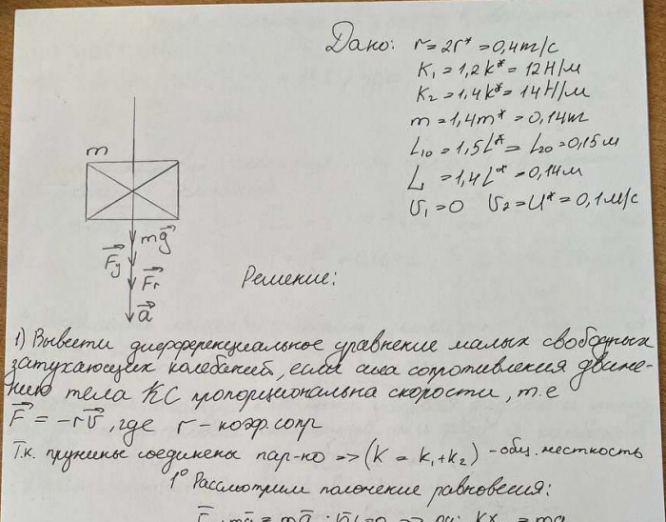 Дано: r = 2r* = 0,4 кг/с
K₁ = 1,2k* = 12 Н/м
K₂ = 1,4k* = 14 Н/м
m = 1,4m* = 0,14 кг
L₁₀ = 1,5L* = L₂₀ = 0,15 м
L = 1,4L* = 0,14 м
U₁ = 0 U₂ = U* = 0,1 м/с
m
mg⃗
F⃗y
F⃗r
a⃗
Решение:
1) Вывести дифференциальное уравнение малых свободных
затухающих колебаний, если сила сопротивления движе-
нию тела КС пропорциональна скорости, т.е
F⃗ = -rV⃗, где r - коэф. сопр
Т.к. пружины соединены пар-но => (K = k₁ + k₂) - общ. жесткость
1° Рассмотрим положение равновесия: